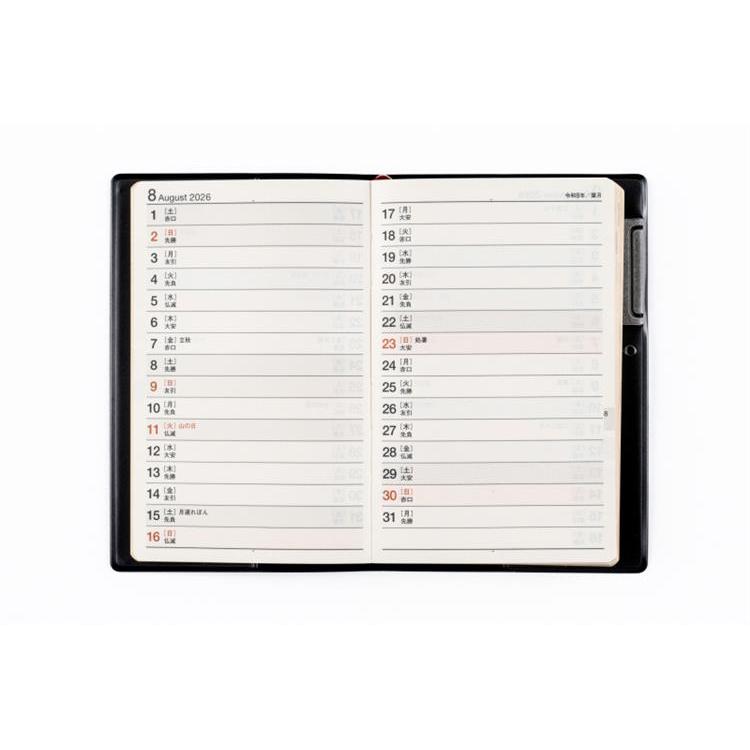 8 August 2026
1 [土]
赤口
2 [日]
先勝
3 [月]
友引
4 [火]
先負
5 [水]
仏滅
6 [木]
大安
7 [金] 立秋
赤口
8 [土]
先勝
9 [日]
友引
10 [月]
先負
11 [火] 山の日
仏滅
12 [水]
大安
13 [木]
先勝
14 [金]
友引
15 [土] 月遅れぼん
先負
16 [日]
仏滅
令和8年／葉月
17 [月]
大安
18 [火]
赤口
19 [水]
先勝
20 [木]
友引
21 [金]
先負
22 [土]
仏滅
23 [日] 処暑
大安
24 [月]
赤口
25 [火]
先勝
26 [水]
友引
27 [木]
先負
28 [金]
仏滅
29 [土]
大安
30 [日]
赤口
31 [月]
先勝
8